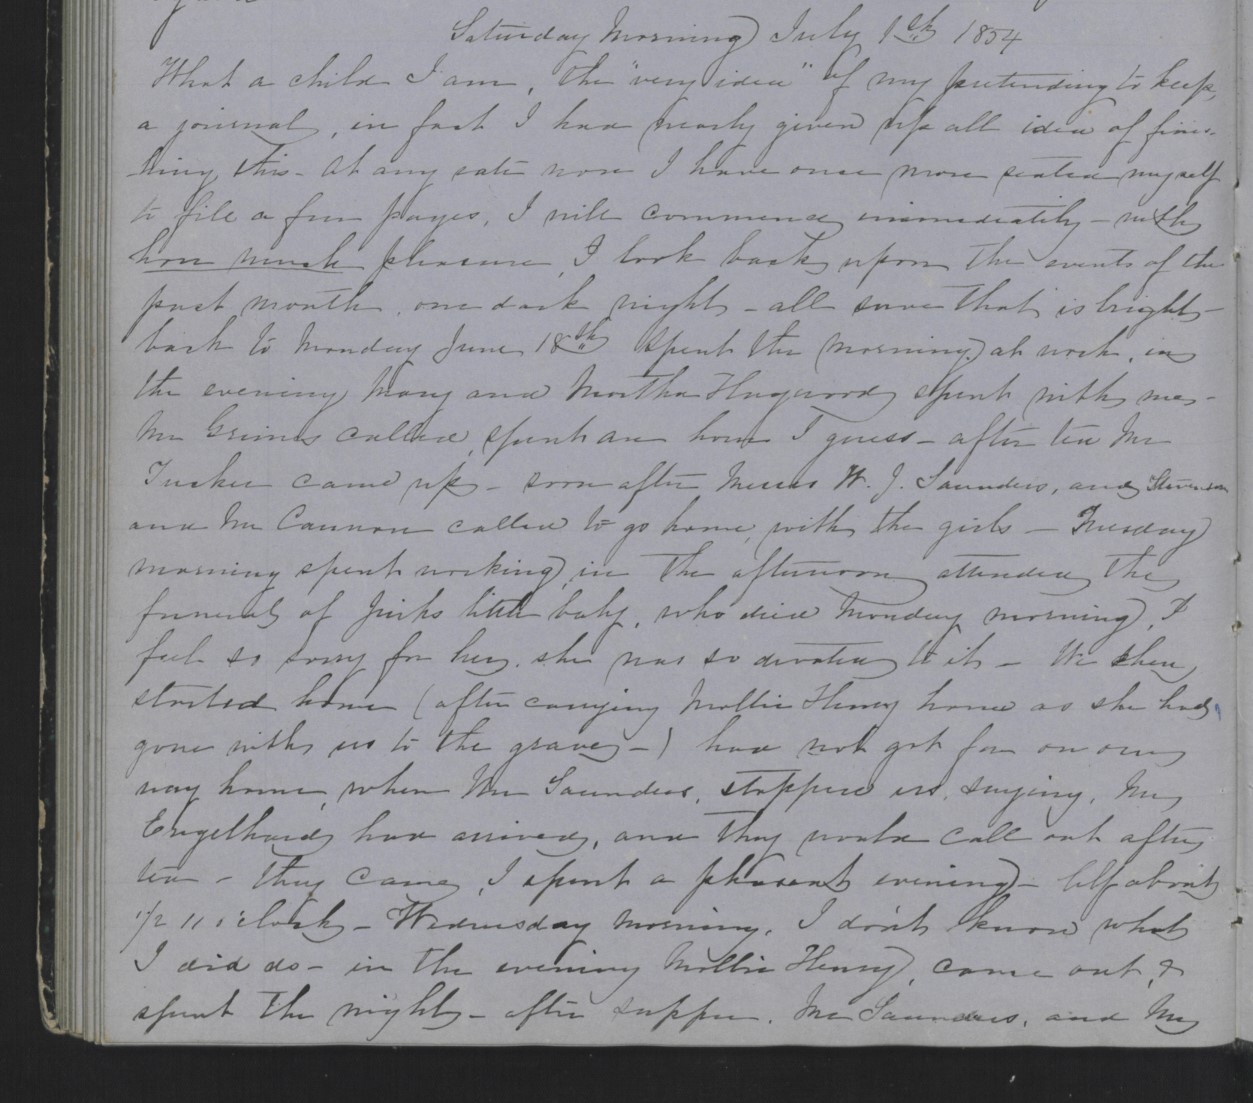 Saturday Morning July 1st 1854
What a child I am, the "very idea" of my pretending to keep
a journal, in fact I had nearly given up all idea of finis-
hing this - At any rate now I have once more seated myself
to file a few pages, I will commence immediately - with
how much pleasure, I look back upon the events of the
past month, one dark night - all save that is bright -
back to Monday June 18th spent the morning at work, in
the evening Mary and Martha Haywood spent with me -
Mr Grimes called, spent an hour I guess - after tea Mr
Tucker came up - soon after Messrs W. J. Saunders, and Stevenson
and Mr Cannon called to go home, with the girls - Tuesday
morning spent working, in the afternoon attended the
funeral of little baby, who died Monday morning, I
feel so sorry for her, she was so devoted to it - We then
started home (after carrying Mollie Henry home as she had
gone with us to the grave -) had not got far on our
way home, when Mr Saunders, stopped us, saying, Mr
Engelhard had arrived, and they would call out after
tea - they came, I spent a pleasant evening - left about
1/2 11 o'clock - Wednesday morning, I don't know what
I did do - in the evening Mollie Henry, came out, &
spent the night - after supper, Mr Saunders, and Mr